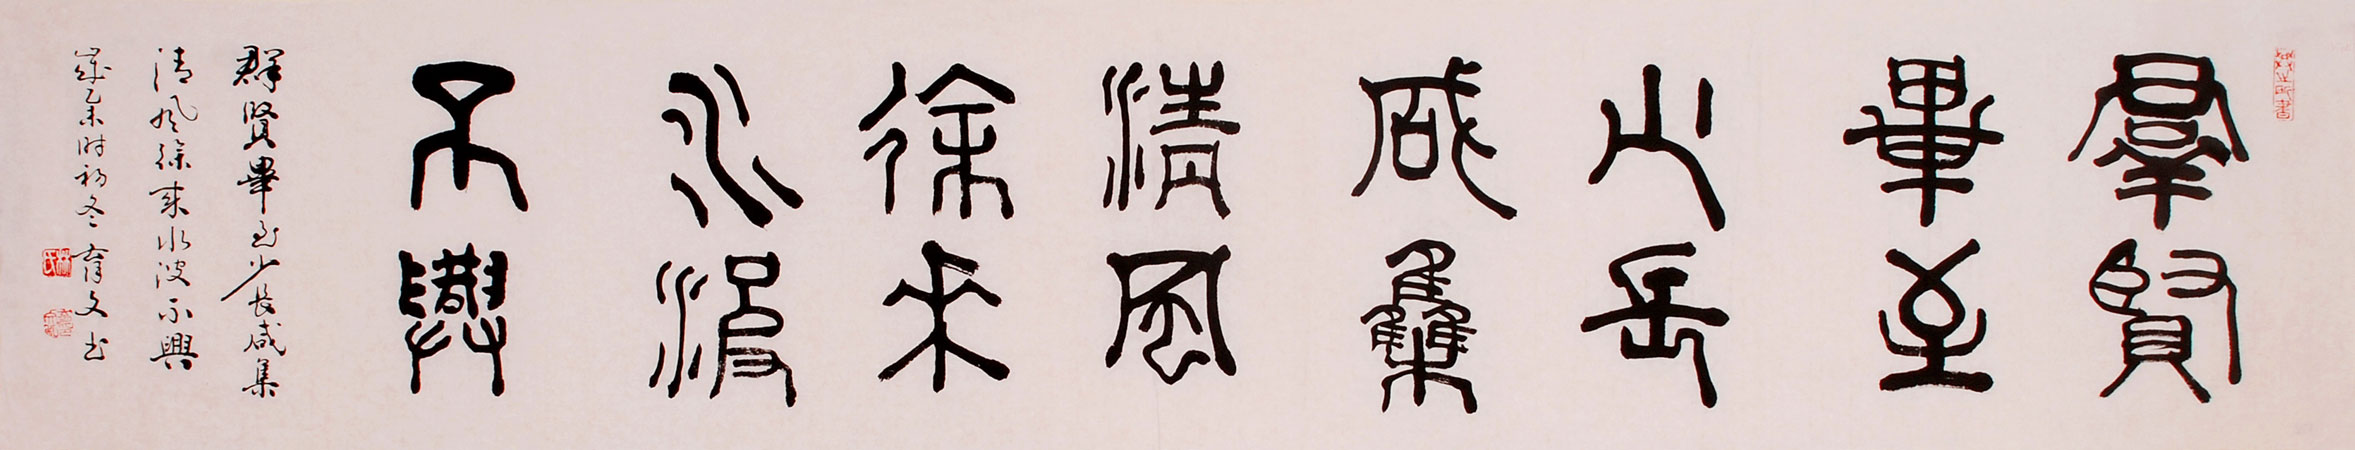 羣賢
畢至
少長
咸集
清風
徐來
水波
不興
群賢畢至少長咸集
清風徐來水波不興
歲乙未时初冬育文书
林氏